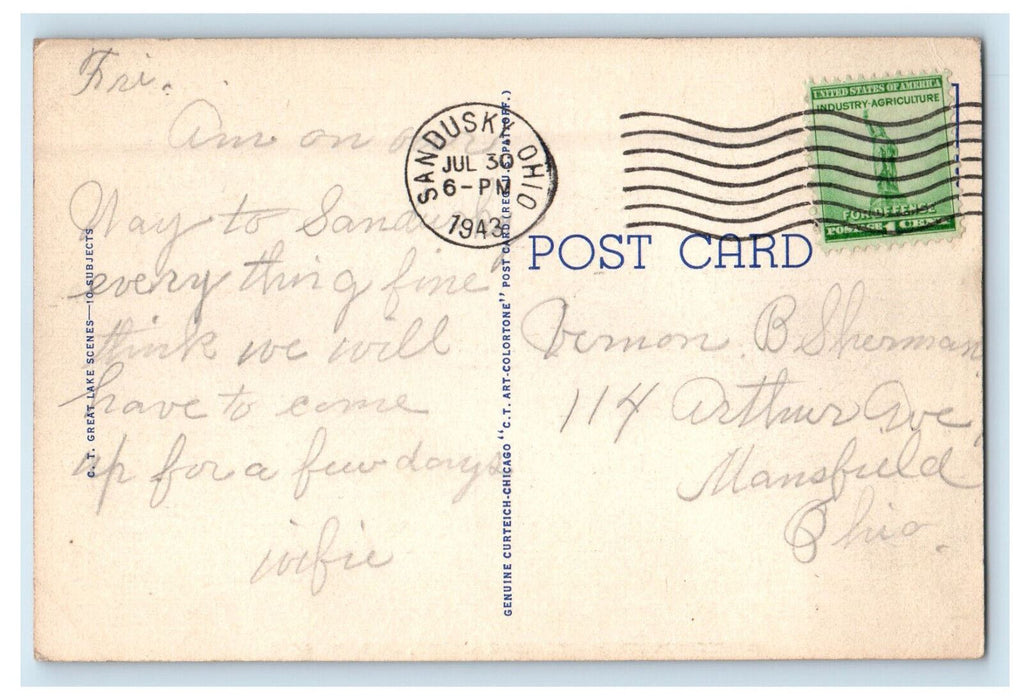 Fri.
Am on our
Way to Sandusky
everything fine
think we will
have to come
up for a few days
wifie
C. T. GREAT LAKE SCENES—10 SUBJECTS
GENUINE CURTEICH-CHICAGO "C.T. ART-COLORTONE" POST CARD (REG. U.S. PAT. OFF.)
SANDUSKY, OHIO
JUL 30
6-PM
1943
UNITED STATES OF AMERICA
INDUSTRY-AGRICULTURE
FOR DEFENSE
POSTAGE 1 CENT
POST CARD
Vernon B Sherman
114 Arthur Ave,
Mansfield
Ohio.